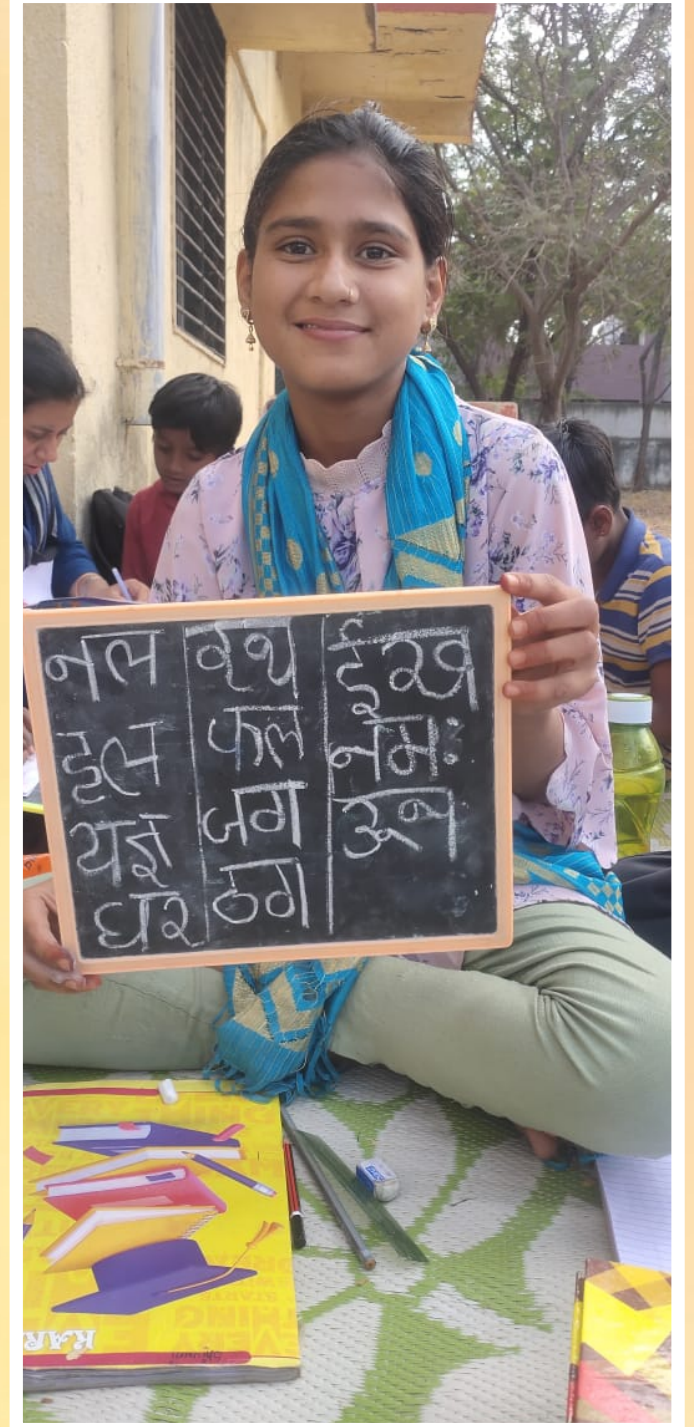 नल
हल
यज्ञ
घर
रथ
फल
जग
ठग
ईख
नमः
ऊन